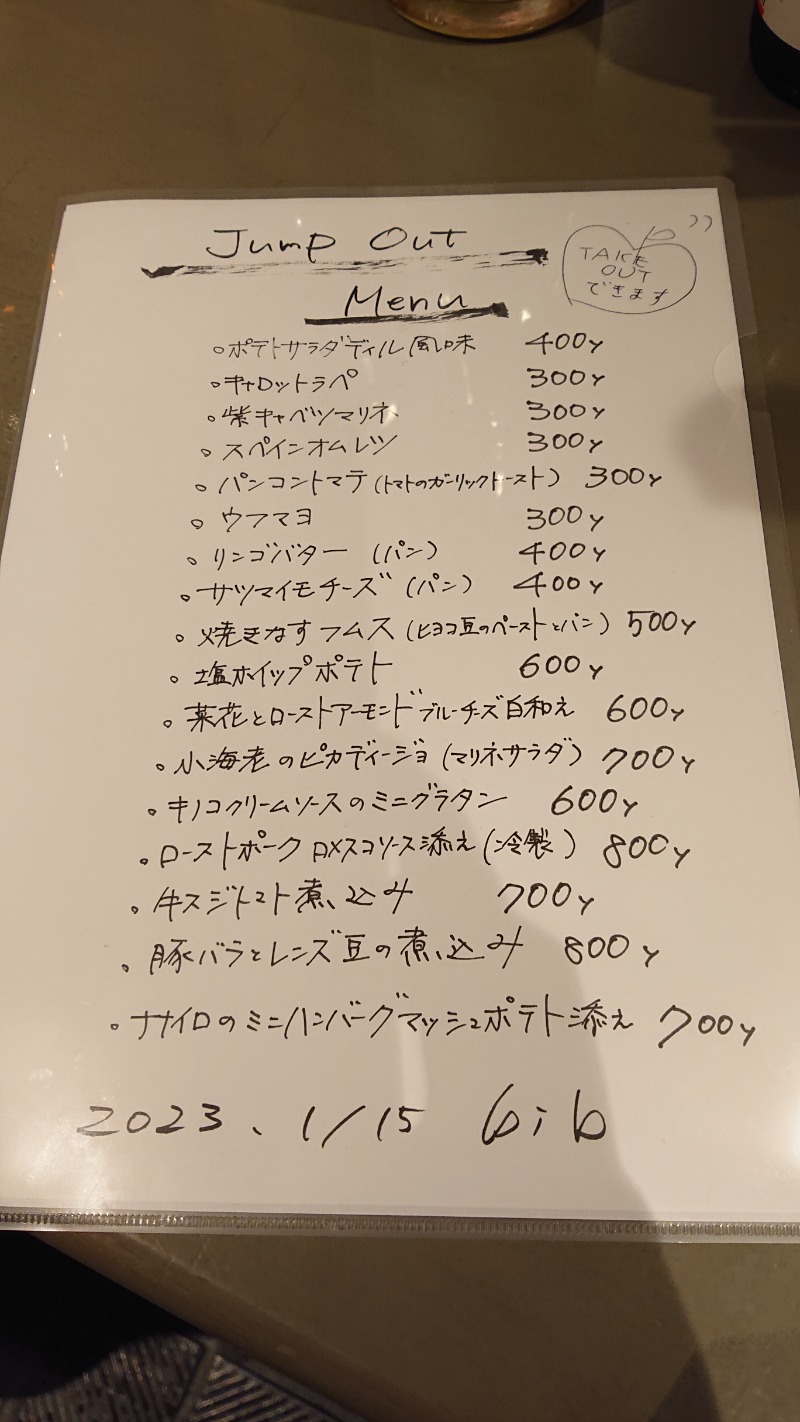 Jump Out
TAKE
OUT
できます
Menu
。ポテトサラダディル風味 400y
。キャロットラペ 300y
。紫キャベツマリネ 300y
。スペインオムレツ 300y
。パンコントマテ(トマトのガーリックトースト) 300y
。ウフマヨ 300y
。リンゴバター (パン) 400y
。サツマイモチーズ (パン) 400y
。焼きなすフムス(ヒヨコ豆のペーストとパン) 500y
。塩ホイップポテト 600y
。菜花とローストアーモンドブルーチーズ白和え 600y
。小海老のピカディージョ(マリネサラダ) 700y
。キノコクリームソースのミニグラタン 600y
。ローストポーク ロメスコソース添え(冷製) 800y
。牛スジトマト煮込み 700y
。豚バラとレンズ豆の煮込み 800y
。ナナイロのミニハンバーグマッシュポテト添え 700y
2023、1/15 bib